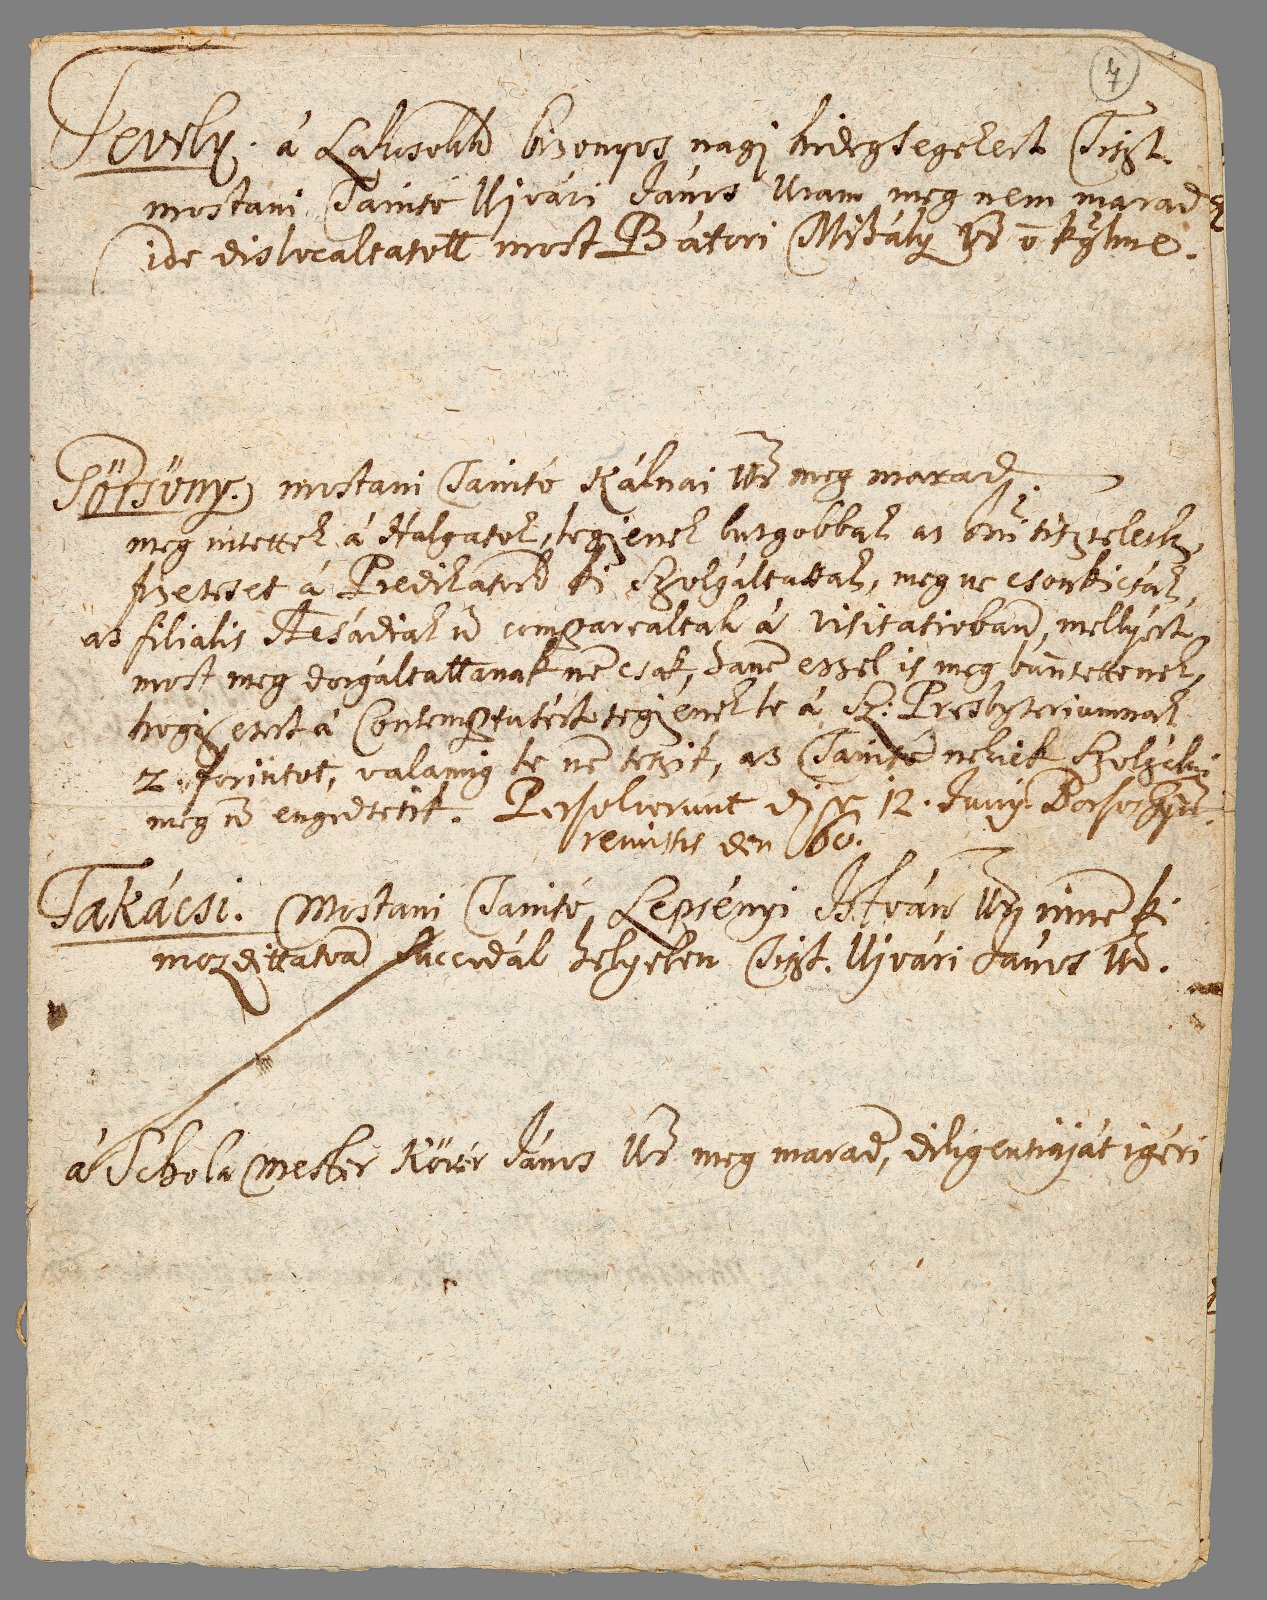 7
Tevely. á Lakosokk bizonyos nagy hidegsegekert Tiszt.
mostani Tanito Ujvári János Uram meg nem marad
ide dislocaltatott most Bátori Mihály Ur ō kglme.
Pörsöny. mostani Tanitó Kálnai Ur meg marad.
meg intettek á Halgatok, legienek buzgobbak az
fizeteset á Predikatork ki szolgáltattak, meg ne csonkicsák,
az filialis comparealtak á visitatioban, mellyért
most meg dorgáltattanak nē csak, hanē ezzel is meg büntettenek,
hogy ezert á Contemptusért tegienek le á Sz: Presbyteriumnak
2. forintot, valamig le nē teszik, az Tanitó nekiek
meg engedtetik. Persolverunt die 12. Junij.
remissis den 60.
Takácsi. Mostani Tanitó Lepsényi István Ur innē ki
mozdittatvā succedál helyeben Tiszt. Ujvári János Ur.
á Schola Mester Kövér János Ur meg marad, diligentiáját igéri